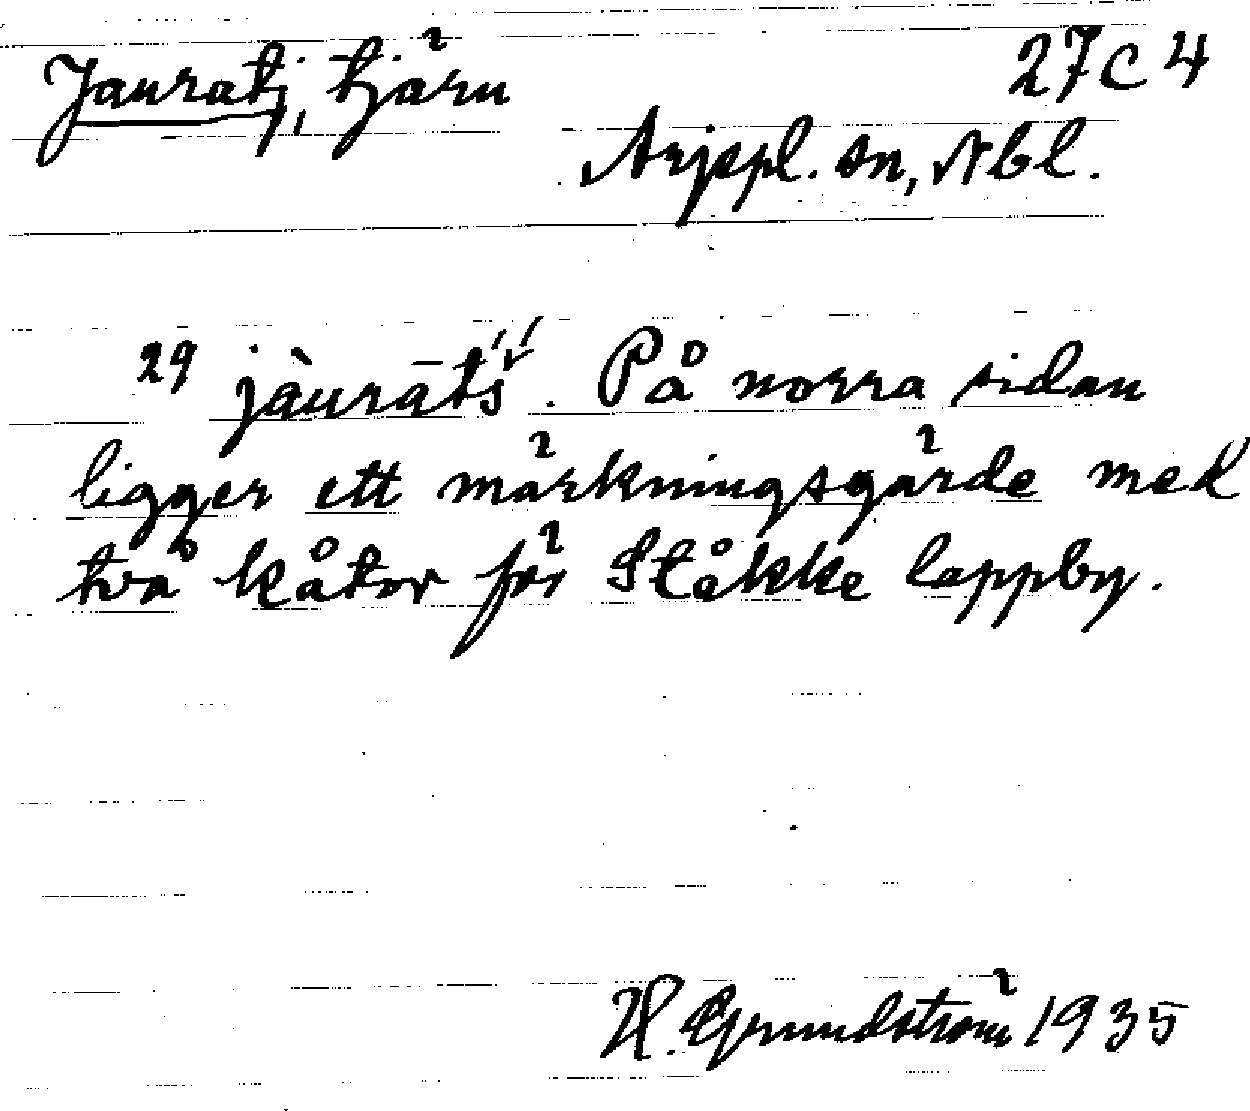 Jauratj, tjärn 27C4
Arjepl. sn, Nbl.
29 jàurātś. På norra sidan
ligger ett märkningsgärde med
två kåtor för Ståkke lappby.
H. Grundström 1935